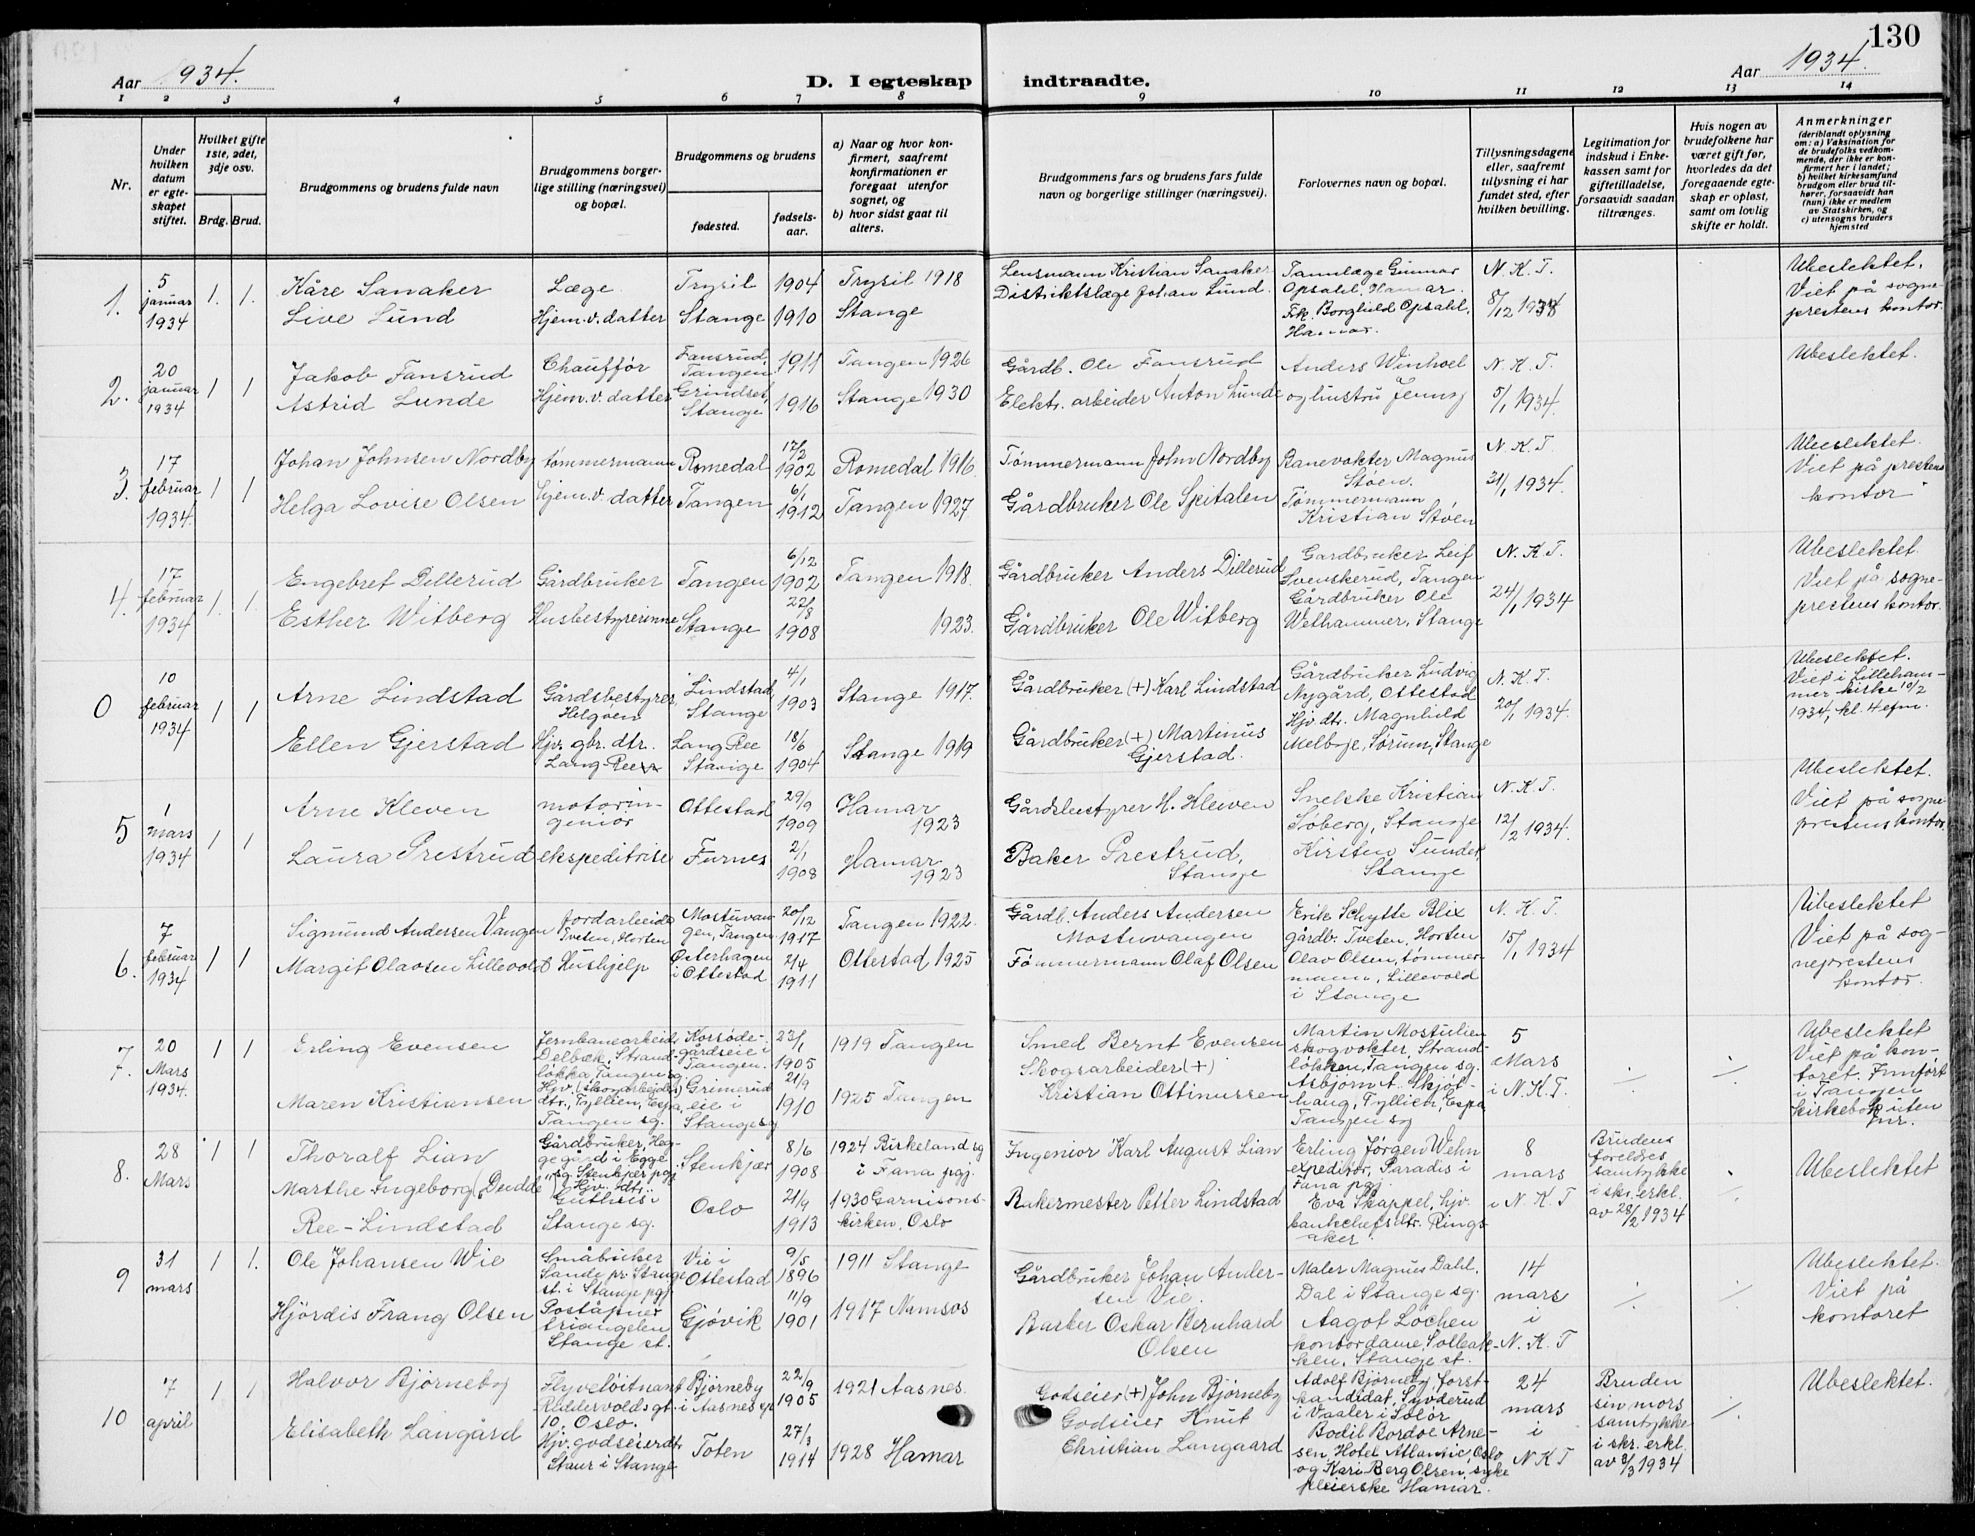 130
Aar 1934.
D. I egteskap indtraadte.
Aar 1934.
1 2 3 4 5 6 7 8 9 10 11 12 13 14
Nr.
Under hvilken datum er egteskapet stiftet.
Hvilket gifte 1ste, 2det, 3dje osv.
Brdg. Brud.
Brudgommens og brudens fulde navn
Brudgommens borgerlige stilling (næringsvei) og bopæl.
Brudgommens og brudens
fødested.
fødselsaar.
a) Naar og hvor konfirmert, saafremt konfirmationen er foregaat utenfor sognet, og
b) hvor sidst gaat til alters.
Brudgommens fars og brudens fars fulde navn og borgerlige stillinger (næringsvei).
Forlovernes navn og bopæl.
Tillysningsdagene eller, saafremt tillysning ei har fundet sted, efter hvilken bevilling.
Legitimation for indskud i Enkekassen samt for giftetilladelse, forsaavidt saadan tiltrænges.
Hvis nogen av brudefolkene har været gift før, hvorledes da det foregaaende egteskap er opløst, samt om lovlig skifte er holdt.
Anmerkninger
(deriblandt oplysning om: a) Vaksination for de brudefolks vedkommende, der ikke er konfirmert her i landet; b) hvilket kirkesamfund brudgom eller brud tilhører, forsaavidt han (hun) ikke er medlem av Statskirken, og c) utensogns bruders hjemsted
1. 5 januar 1934 1. 1.
Kåre Sanaker Læge Trysil 1904 Trysil 1918
Live Lund Hjem.v. datter Stange 1910 Stange
Lensmann Kristian Sanaker
Distriktslæge Johan Lund.
Tannlæge Gunnar
Opsahl, Hamar.
Frk. Borghild Opsahl,
Hamar.
N. K. T.
8/12 1933
Ubeslektet.
Viet på sogne-
prestens kontor.
2. 20 januar 1934 1 1
Jakob Fansrud Chauffør Fansrud, Tangen 1911 Tangen 1926
Astrid Lunde Hjem.v. datter Grindset, Stange 1916 Stange 1930
Gårdb. Ole Fansrud
Elektr. arbeider Anton Lunde
Anders Winhoel
og hustru Jenny
N. K. T.
5/1 1934.
Ubeslektet.
3. 17 februar 1934. 1 1
Johan Johnsen Nordby tømmermann Romedal 17/2 1902 Romedal 1916.
Helga Lovise Olsen Hjem.v. datter Tangen 6/1 1912 Tangen 1927
Tømmermann John Nordby
Gårdbruker Ole Spitalen
Banevokter Magnus
Støen.
Tømmermann
Kristian Støen
N. K. T.
31/1 1934.
Ubeslektet.
Viet på prestens
kontor
4. 17 februar 1934 1. 1.
Engebret Dillerud Gårdbruker Tangen 6/12 1902 Tangen 1918.
Esther Witberg Husbestyrerinne Stange 22/8 1908 1923.
Gårdbruker Anders Dillerud
Gårdbruker Ole Witberg
Gårdbruker Leif
Svenskerud, Tangen
Gårdbruker Ole
Wethammer, Stange
N. K. T.
24/1 1934
Ubeslektet.
Viet på sogne-
prestens kontor.
0 10 februar 1934 1 1
Arne Lindstad Gårdsbestyrer, Helgøen Lindstad, Stange 4/1 1903 Stange 1917.
Ellen Gjerstad Hjv. gbr. dtr. Lang-Ree Lang Ree Stange 18/6 1904 Stange 1919
Gårdbruker (+) Karl Lindstad
Gårdbruker (+) Martinus
Gjerstad.
Gårdbruker Ludvig
Nygård, Ottestad
Hjv. dtr. Magnhild
Melbye, Sørum, Stange
N. K. T.
20/1 1934.
Ubeslektet.
Viet i Lilleham-
mer kirke 10/2
1934, kl. 4 efm.
5 1 mars 1934 1 1
Arne Kleven motorin-
geniør Ottestad 29/9 1909 Hamar 1923
Laura Prestrud ekspeditrise Furnes 2/1 1908 Hamar 1923
Gårdsbestyrer H. Kleven
Baker Prestrud,
Stange
Kristian
Søberg, Stange
Kirsten Sunde,
Stange
N. K. T.
12/2 1934.
Ubeslektet.
Viet på sogne-
prestens kontor.
6. 7 februar 1934 1 1
Sigmund Andersen Vangen Jordarbeider Tveten, Horten Mostuvan-
gen, Tangen 20/12 1917 Tangen 1922.
Margit Olavsen Lillevold Hushjelp Østerhagen i Ottestad 2/4 1911 Ottestad 1925
Gårdb. Anders Andersen
Mostuvangen
Tømmermann Olaf Olsen
Erik Schytte Blix
gårdb. Tveten, Horten
Olav Olsen, tømmer-
mann, Lillevold
i Stange
N. K. T.
15/1 1934
Ubeslektet
Viet på sog-
neprestens
kontor.
7. 20 Mars 1934. 1 1
Erling Evensen Jernbanearbeider Delbæk, Strand-
løkka, Tangen sg. Korsøde-
gårdseie i Tangen. 23/1 1905 1919 Tangen
Maren Kristiansen Hjv. (skogarbeider) dtr., Fyllien, Espa, Tangen sg. Grimerud eie i Stange sg 21/9 1910 1925 Tangen
Smed Bernt Evensen
Skogsarbeider (+)
Kristian Ottinussen
Martin Mostulien
skogvokter, Strand-
løkken, Tangen sg.
Asbjørn A. Skjøt-
haug, Fyllien, Espa
Tangen sg
5
Mars
i N. K. T.
Ubeslektet
Viet på kon-
toret. Innført
i Tangen
kirkebok uten
nr.
8. 28 Mars 1 1
Thoralf Lian Gårdbruker, Heg-
gegård i Egge sg. Stenkjær pgj Stenkjær 8/6 1908 1924 Birkeland sg i Fana pgj.
Marthe Ingeborg (Dudde)
Ree-Lindstad Hjv. dtr. Gutheis i Stange sg. Oslo 21/9 1913 1930 Garnisons-
kirken, Oslo
Ingeniør Karl August Lian
Bakermester Petter Lindstad
Erling Jørgen Wehn
expeditør, Paradis i
Fana pgj.
Eva Skappel, hjv.
bankchefs dtr. Rings-
aker.
8
mars
i N. K. T
Brudens
foreldres
samtykke
i skr. erkl.
av 28/2 1934
Ubeslektet
9 31 mars 1 1.
Ole Johansen Wie Småbruker Sande pr. Stange st. i Stange pgj Vie i Ottestad 9/5 1896 1911 Stange
Hjördis Frang Olsen Poståpner triangelen Stange st. Gjøvik 11/9 1901 1917 Namsos
Gårdbruker Johan Ander-
sen Vie.
Barber Oskar Bernhard
Olsen
Maler Magnus Dahl.
Dal i Stange sg.
Aagot Lochen
kontordame, Solbak-
ken, Stange st.
14
mars
i
N. K. T
Ubeslektet.
Viet på
kontoret
10 7 april 1 1
Halvor Bjørneby Flyveløitnant Reddervolds gt. 10, Oslo. Bjørneby i Aasnes sg 22/9 1905 1921 Aasnes.
Elisabeth Langård Hjv. godseierdtr. Staur i Stange Toten 27/3 1914 1928 Hamar
Godseier (+) John Bjørneby
Godseier Knut
Christian Langaard
Adolf Bjørneby, forst-
kandidat, Syverud
i Vaaler i Solør
Bodil Bordoe Arne-
sen, Hotel Atlantic, Oslo
og Kari Berg Olsen, syke
pleierske Hamar.
24
mars
i
N K T
Bruden
sin mors
samtykke
i skr. erkl.
av 8/3 1934
Ubeslektet.